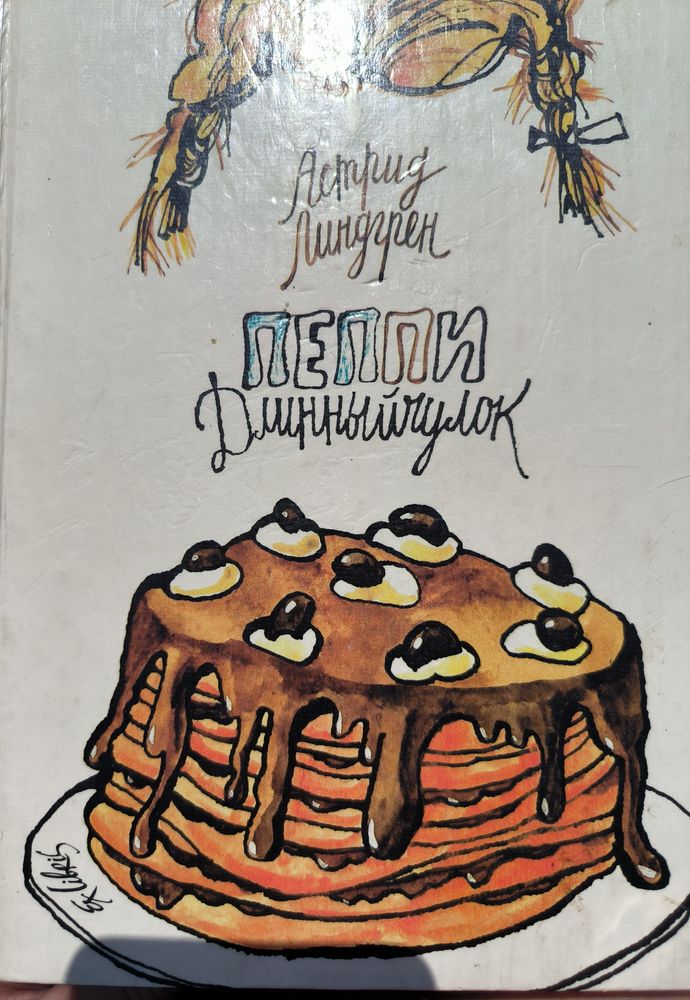 Астрид
Линдгрен
ПЕППИ
Длинныйчулок
Ex libris